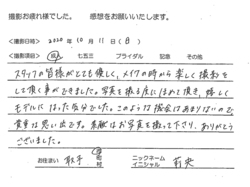 撮影お疲れ様でした。 感想をお願いいたします。
<撮影日時> 2020年10月11日(日)
<撮影項目> 成人 七五三 ブライダル 記念 その他
スタッフの皆様がとても優しく、メイクの時から楽しく撮影をして頂く事ができました。写真を撮る度にほめて頂き、嬉しくモデルになった気分でした。このような機会はあまりないので貴重な思い出です。素敵なお写真を撮って下さり、ありがとうございました。
お住まい 取手 市 町 村 ニックネーム イニシャル 莉央